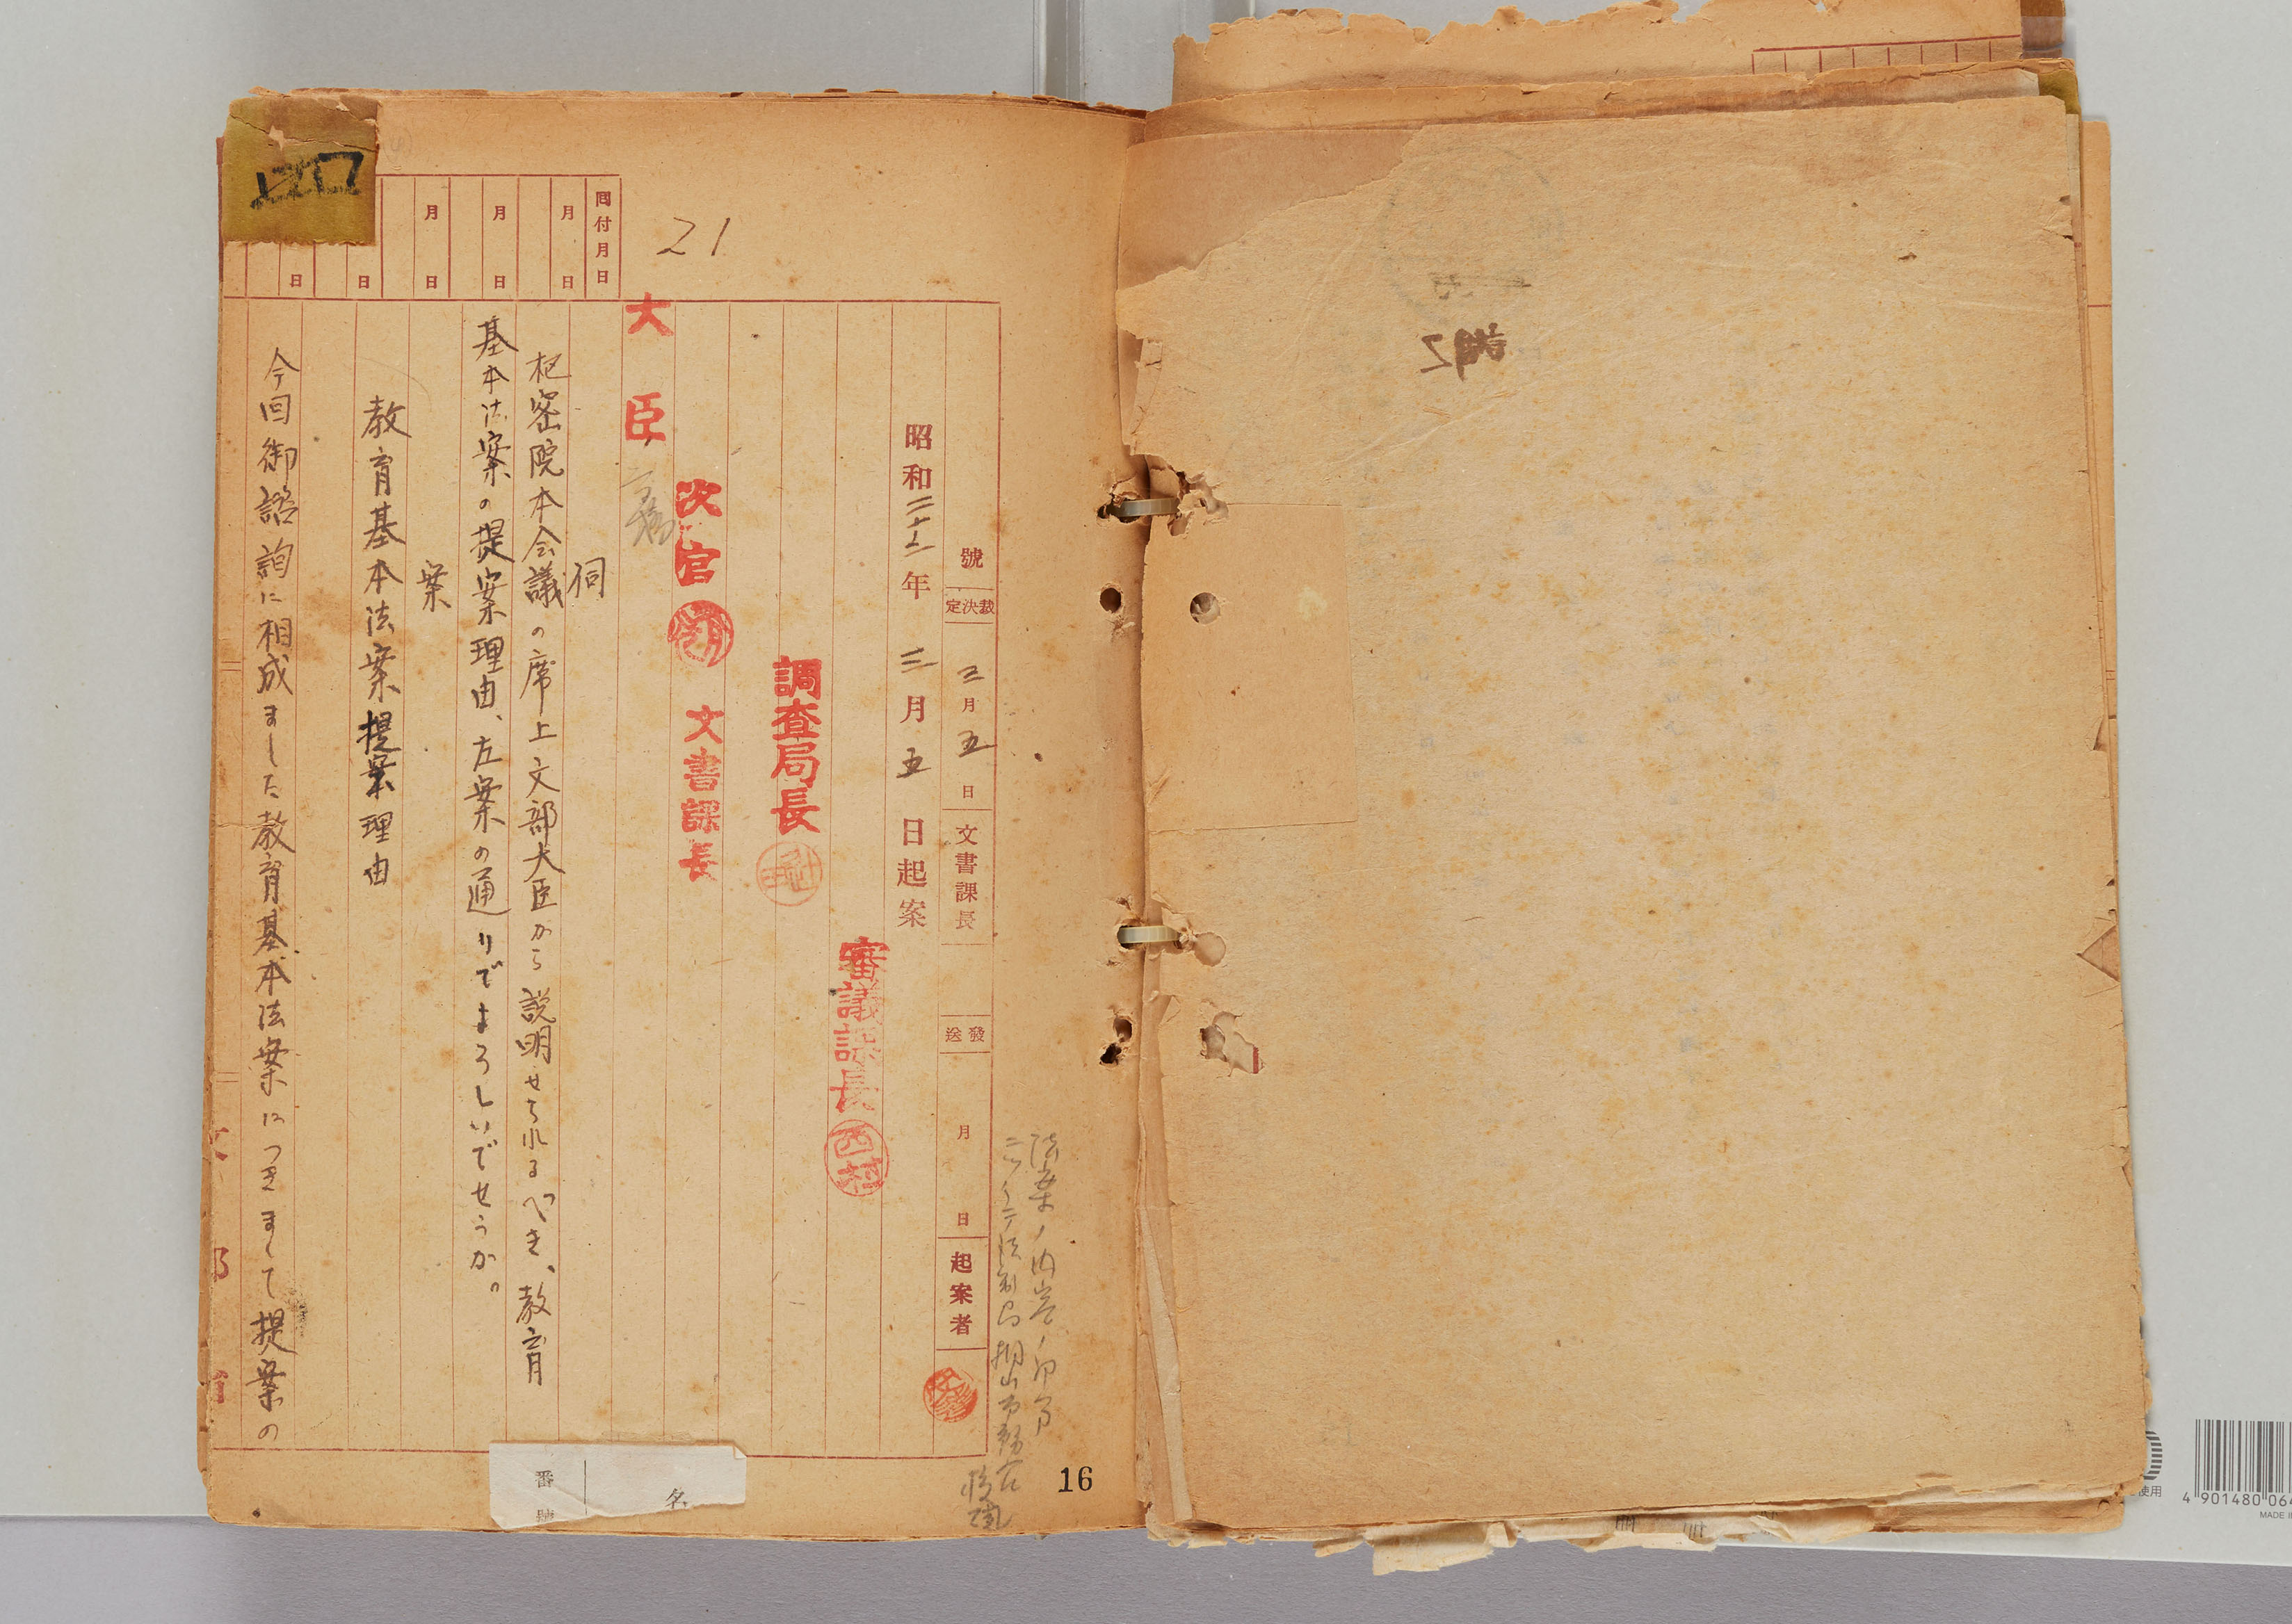 21
回付月日
月 日
月 日
月 日
日
日
號
裁決定
三月五日
文書課長
發送
月 日
起案者
昭和二十二年 三月五日起案
審議課長 西村
調査局長
次官
文書課長
大臣
伺
枢密院本会議の席上文部大臣から説明せられるべき、教育
基本法案の提案理由、左案の通りでよろしいでせうか。
案
教育基本法案提案理由
今回御諮詢に相成ました教育基本法案につきまして提案の
法案ノ内
番號
名
16
使用
4 901480 06
MADE I